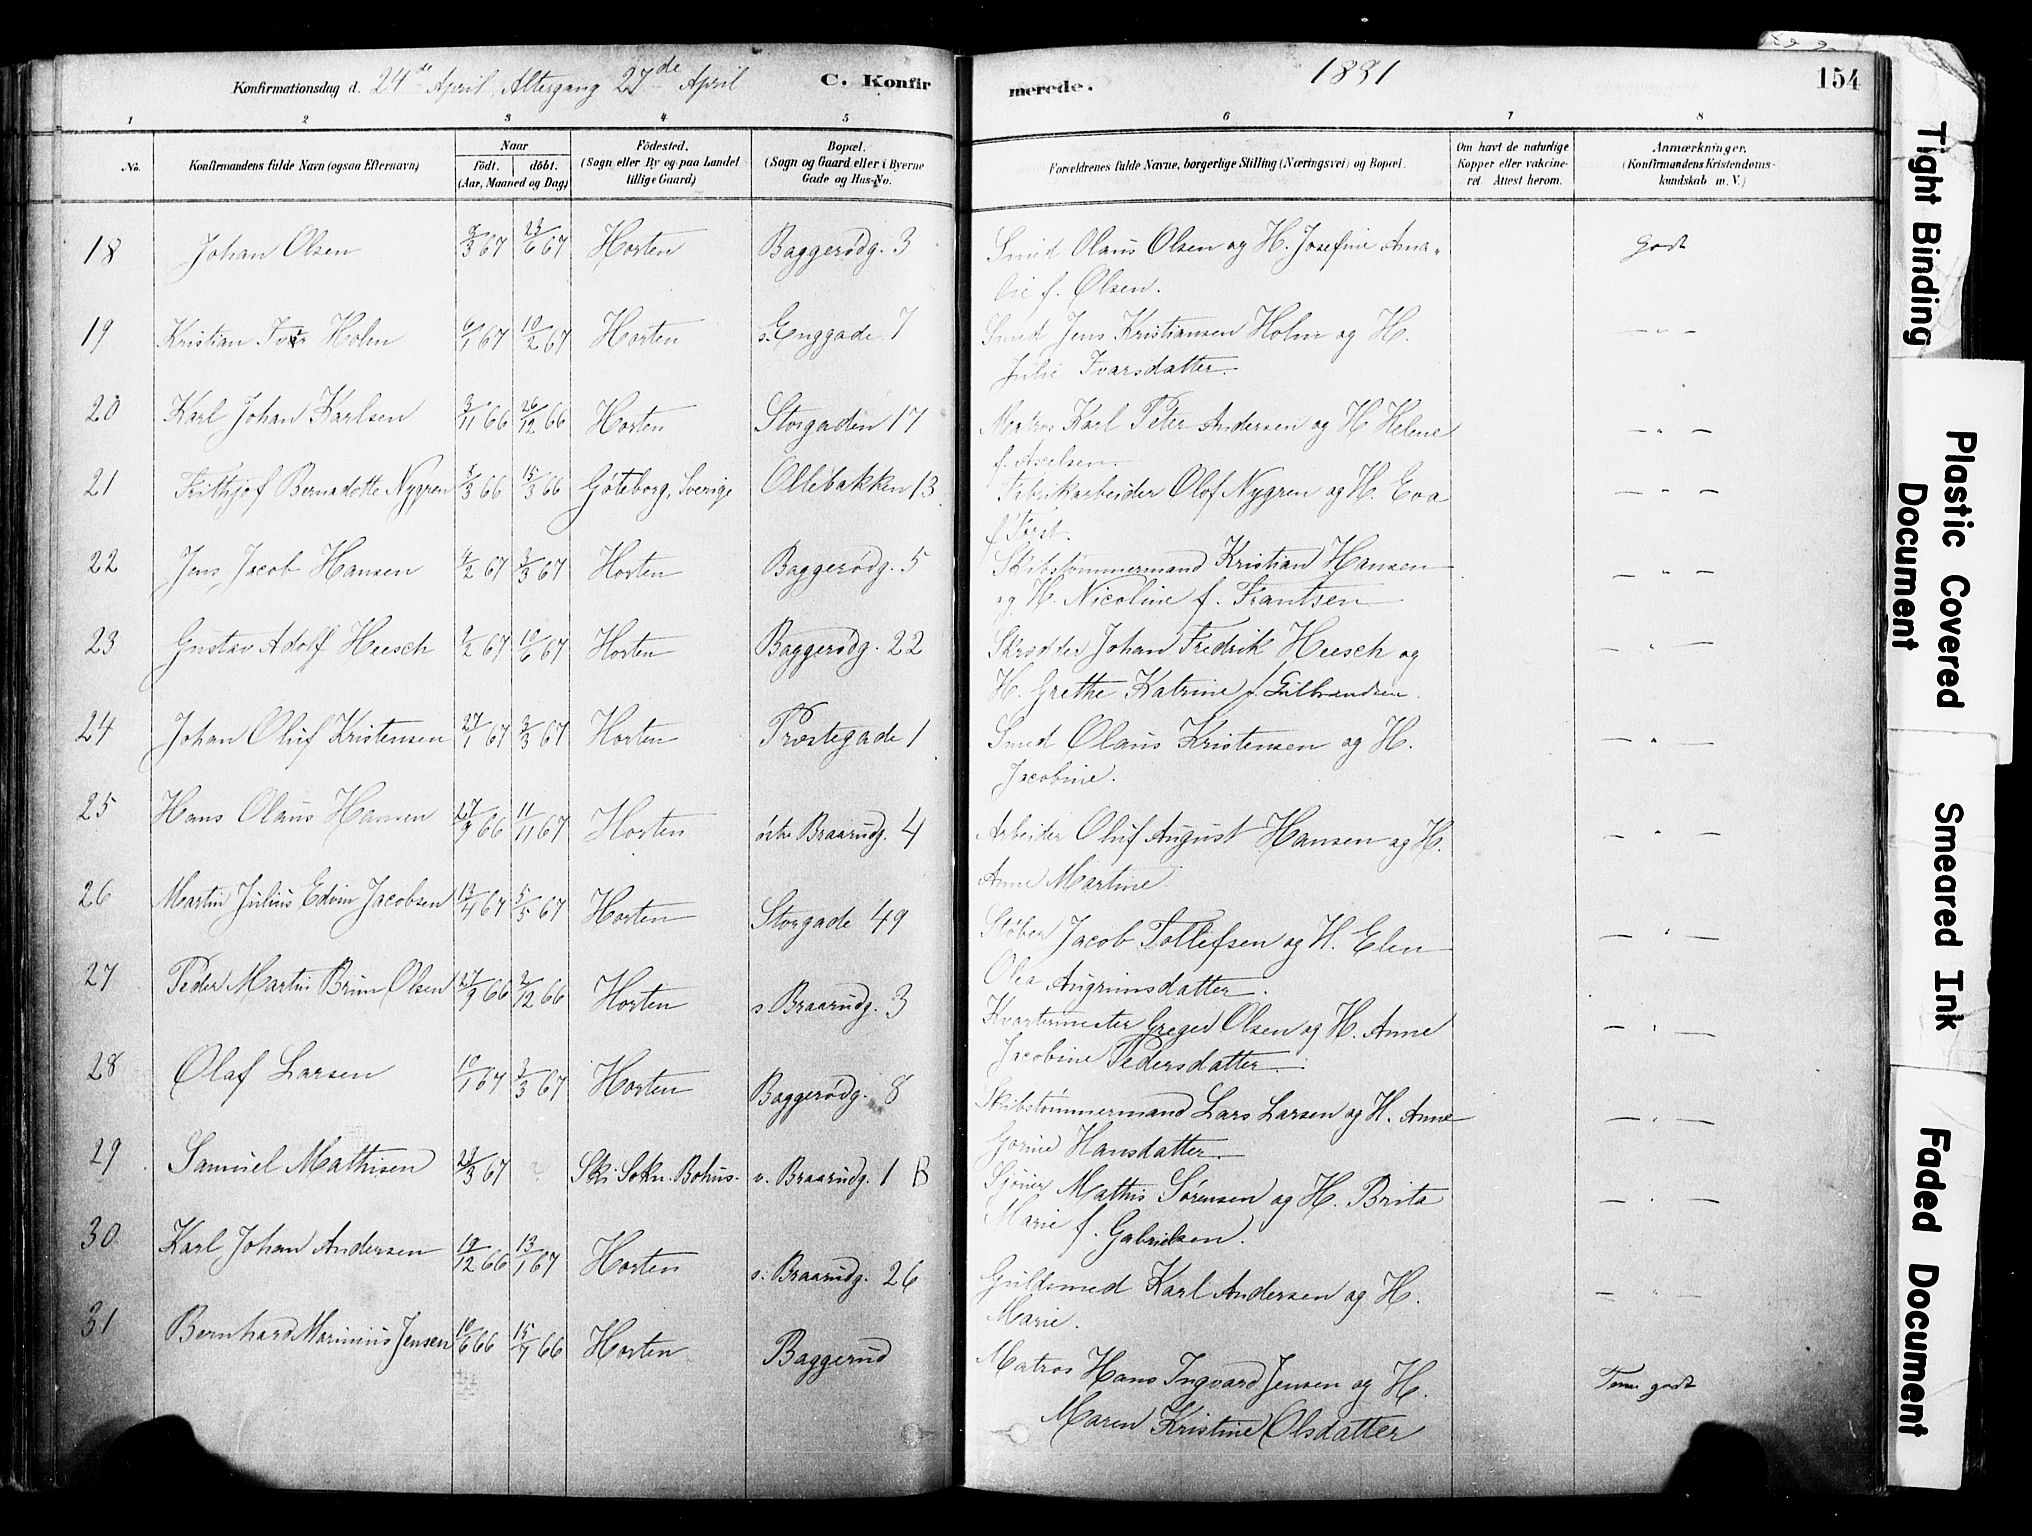 Konfirmationsdag d. 24de April, Altergang 27de April C. Konfir
merede. 1881 154
1 2 3 4 5 6 7 8
No. Konfirmandens fulde Navn (ogsaa Efternavn) Naar födt. döbt. (Aar, Maaned og Dag) Födested. (Sogn eller By og paa Landet tillige Gaard) Bopæl. (Sogn og Gaard eller i Byerne Gade og Hus-No. Forældrenes fulde Navne, borgerlige Stilling (Næringsvei) og Bopæl. Om havt de naturlige Kopper eller vakcineret. Attest herom. Anmærkninger. (Konfirmandens Kristendomskundskab m. V.)
18 Johan Olsen 67 23/6 67 Horten Baggerødg. 3 Smed Olaus Olsen og H. Josefine Ama-
lie f. Olsen. Godt
19 Kristian Ivar Holm 6/1 67 10/2 67 Horten s. Enggade 7 Smed Jens Kristiansen Holm og H.
Julie Ivarsdatter. — " —
20 Karl Johan Karlsen 3/11 66 26/12 66 Horten Storgaden 17 Matros Karl Peter Andersen og H Helene
f. Axelsen. — " —
21 Frithjof Bernadotte Nygren 3/3 66 15/3 66 Göteborg, Sverige Ollebakken 13 Fabrikarbeider Olof Nygren og H. Eva
f. — " —
22 Jens Jacob Hansen 67 3/3 67 Horten Baggerødg. 5 Skibstømmermand Kristian Hansen
og H. Nicoline f. Frantsen — " —
23 Gustav Adolf Heesch 2/2 67 10/6 67 Horten Baggerødg. 22 Skrædder Johan Fredrik Heesch og
H. Grethe Katrine f. Gilbrandsen. — " —
24 Johan Oluf Kristensen 27/1 67 3/3 67 Horten Prestegade 1 Smed Olaus Kristensen og H.
Jacobine. — " —
25 Hans Olaus Hansen 27/9 66 11/11 67 Horten østre Braarudg. 4 Arbeider Oluf August Hansen og H.
Anne Martine. — " —
26 Martin Julius Edvin Jacobsen 13/4 67 5/5 67 Horten Storgade 49 Støber Jacob Tollefsen og H. Elen
Olea Angrimsdatter. — " —
27 Peder Martin Brun Olsen 27/9 66 2/12 66 Horten s. Braarudg. 3 Kvartermester Greger Olsen og H. Anne
Jacobine Pedersdatter. — " —
28 Olaf Larsen 10/1 67 3/3 67 Horten Baggerødg. 8 Skibstømmermand Lars Larsen og H. Anne
Gorine Hansdatter. — " —
29 Samuel Mathisen 67 ? Ski Sokn. Bohus. v. Braarudg. 1 B Sjømand Mathis Sørensen og H. Brita
Marie f. Gabrielsen. — " —
30 Karl Johan Andersen 19/12 66 13/1 67 Horten s. Braarudg. 26 Guldsmed Karl Andersen og H.
Marie. — " —
31 Bernhard Marinius Jensen 10/6 66 15/7 66 Horten Baggerud Matros Hans Ingvard Jensen og H.
Maren Kristine Olsdatter Tem. godt
Tight Binding
Plastic Covered Document
Smeared Ink
Faded Document